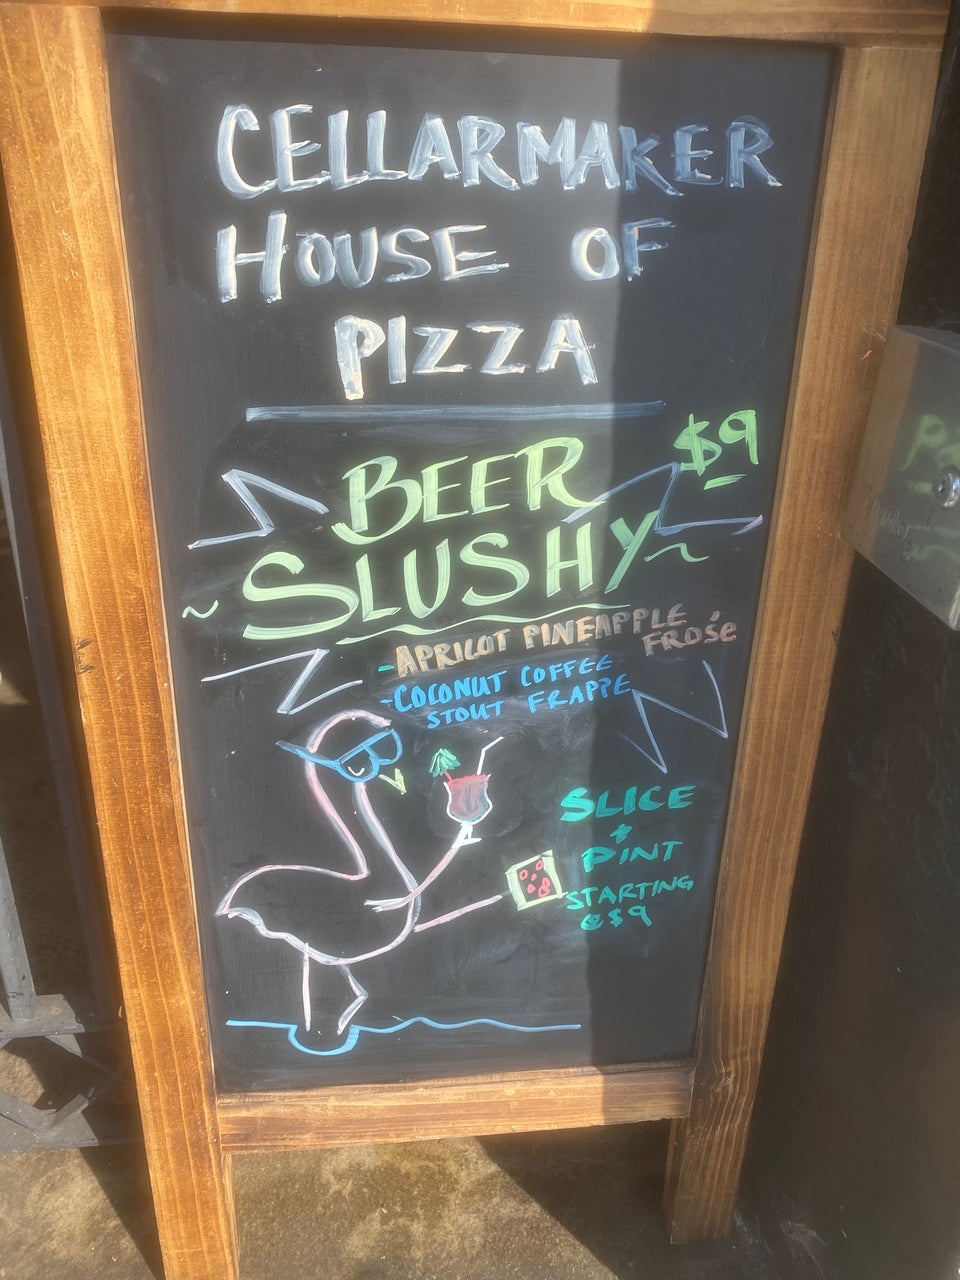 CELLARMAKER
HOUSE OF
PIZZA
$9
BEER
~SLUSHY~
-APRICOT PINEAPPLE
FROSÉ
-COCONUT COFFEE
STOUT FRAPPE
SLICE
+
PINT
STARTING
@$9